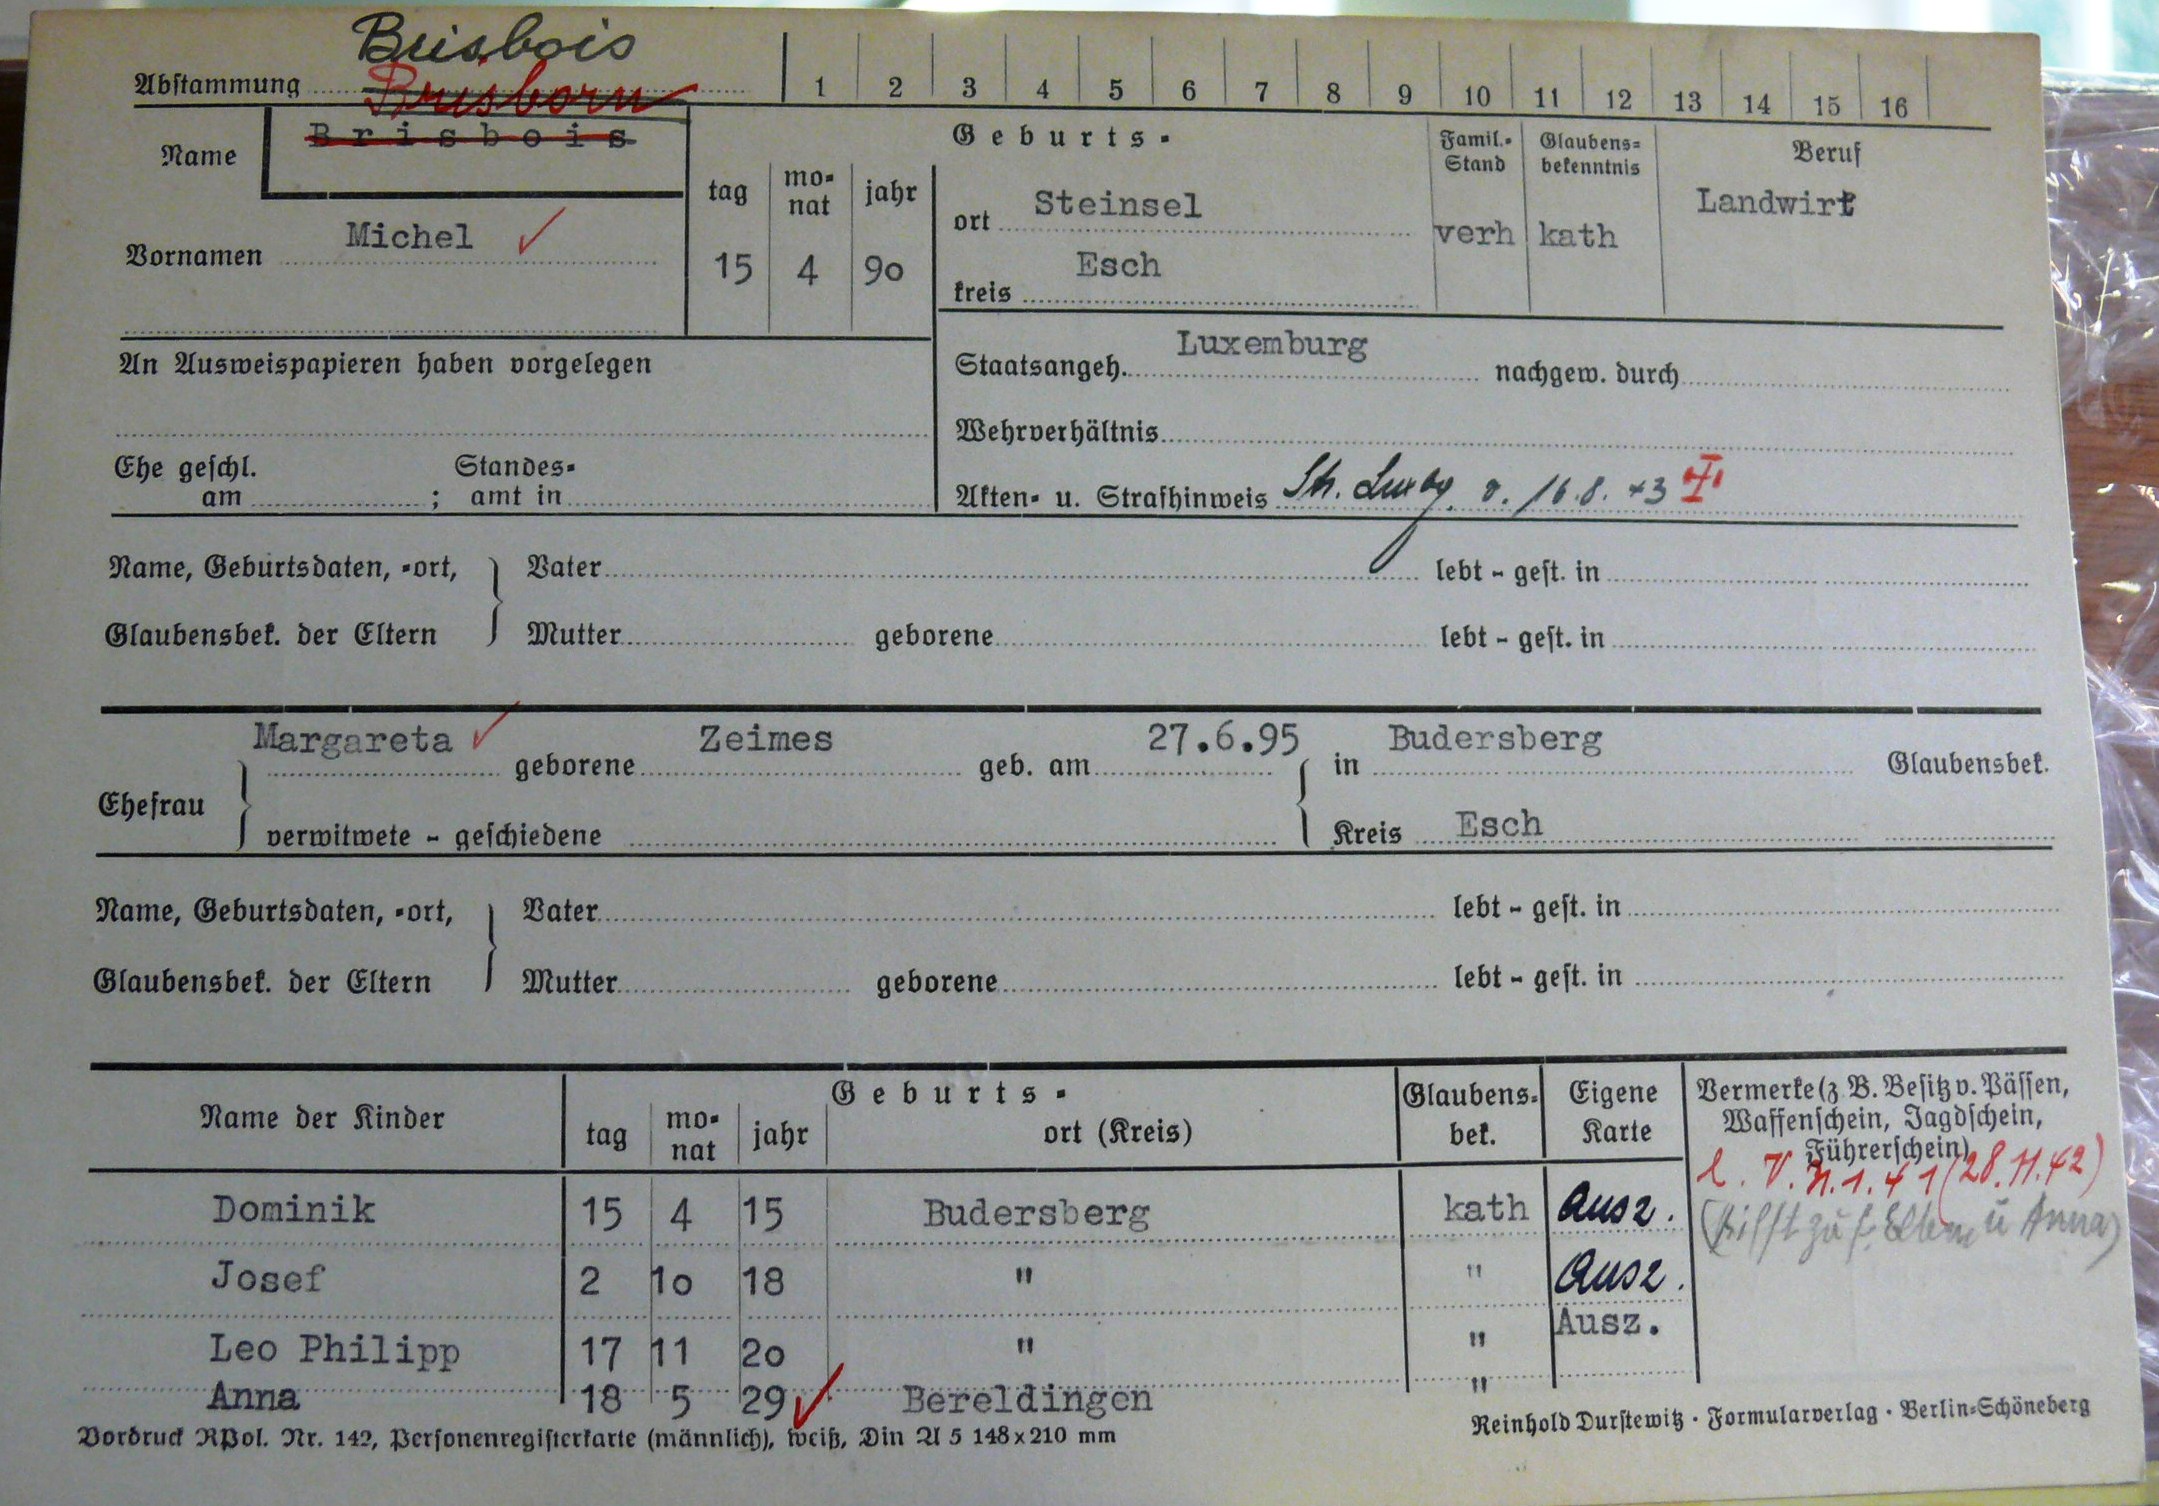 Brisbois
Abstammung Brisborn 1 2 3 4 5 6 7 8 9 10 11 12 13 14 15 16
Name Brisbois
Geburts-
Famil.-Stand
Glaubens-bekenntnis
Beruf
tag monat jahr
ort Steinsel
verh kath Landwirt
Vornamen Michel
15 4 90
kreis Esch
An Ausweispapieren haben vorgelegen
Staatsangeh. Luxemburg nachgew. durch
Wehrverhältnis
Ehe geschl. am ; Standes-amt in
Akten- u. Strafhinweis St. Luxbg. v. 16.8.43 I
Name, Geburtsdaten, -ort, Vater lebt - gest. in
Glaubensbek. der Eltern Mutter geborene lebt - gest. in
Margareta geborene Zeimes geb. am 27.6.95 in Budersberg Glaubensbek.
Ehefrau
verwitwete - geschiedene Kreis Esch
Name, Geburtsdaten, -ort, Vater lebt - gest. in
Glaubensbek. der Eltern Mutter geborene lebt - gest. in
Name der Kinder
Geburts-
tag monat jahr ort (Kreis)
Glaubens-bek.
Eigene Karte
Vermerke (z. B. Besitz v. Pässen,
Waffenschein, Jagdschein,
Führerschein)
l. V. n. 1. 41 (28.11.42)
Dominik 15 4 15 Budersberg kath Ausz.
Eltern u Anna)
Josef 2 10 18 " " Ausz.
Leo Philipp 17 11 20 " " Ausz.
Anna 18 5 29 Bereldingen "
Vordruck RPol. Nr. 142, Personenregisterkarte (männlich), weiß, Din A 5 148x210 mm
Reinhold Durstewitz · Formularverlag · Berlin-Schöneberg